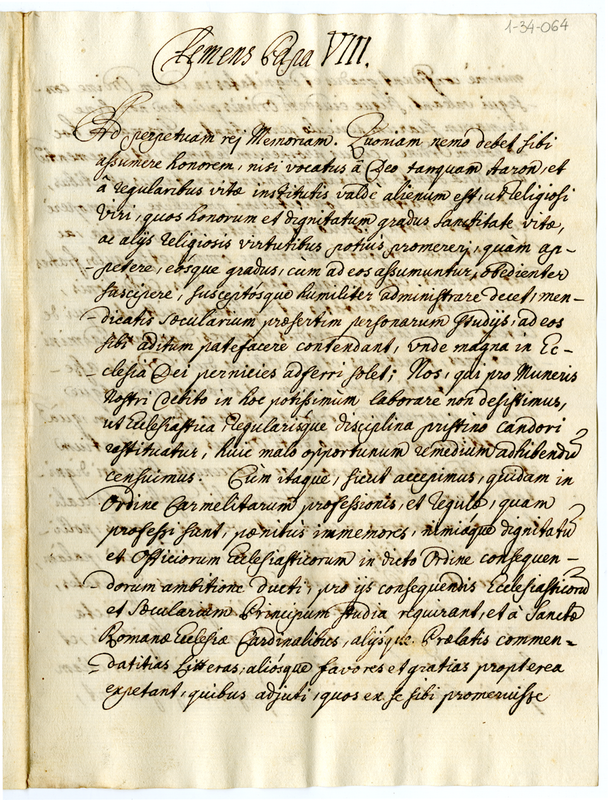 1-34-064
Clemens Papa VIII.
Ad perpetuam rej Memoriam. Quoniam nemo debet sibi
assumere honorem, nisi vocatus à Deo tanquam Aaron, et
à regularibus vitæ institutis valdè alienum est, ut religiosi
Viri, quos honorum et dignitatum gradus sanctitate vitæ,
ac alijs religiosis virtutibus potius promereri, quàm ap-
petere, eosque gradus, cùm ad eos assumuntur, obedienter
suscipere, susceptosque humiliter administrare decet, men-
-dicatis sæcularium præsertim personarum studijs, ad eos
sibi aditum patefacere contendant, unde magna in Ec-
-clesia Dei pernicies adferri solet; Nos, qui pro Muneris
Nostri debito in hoc potissimum laborare non desistimus,
ut Ecclesiastica Regularisque disciplina pristino candori
restituatur, huic malo opportunum remedium adhibendū
censuimus. Cum itaque, sicut accepimus, quidam in
Ordine Carmelitarum professionis, et Regulæ, quam
professi sunt, pænitus immemores, nimiaque dignitatū
et Officiorum Ecclesiasticorum in dicto Ordine consequen-
-dorum ambitione ducti, pro ijs consequendis Ecclesiasticorū
et Sæcularium Principum studia requirant, et à Sanctæ
Romanæ Ecclesiæ Cardinalibus, alijsque Prælatis commen-
-datitias Litteras, aliosque favores et gratias propterea
expetant, quibus adjuti, quos ex se sibi promeruisse